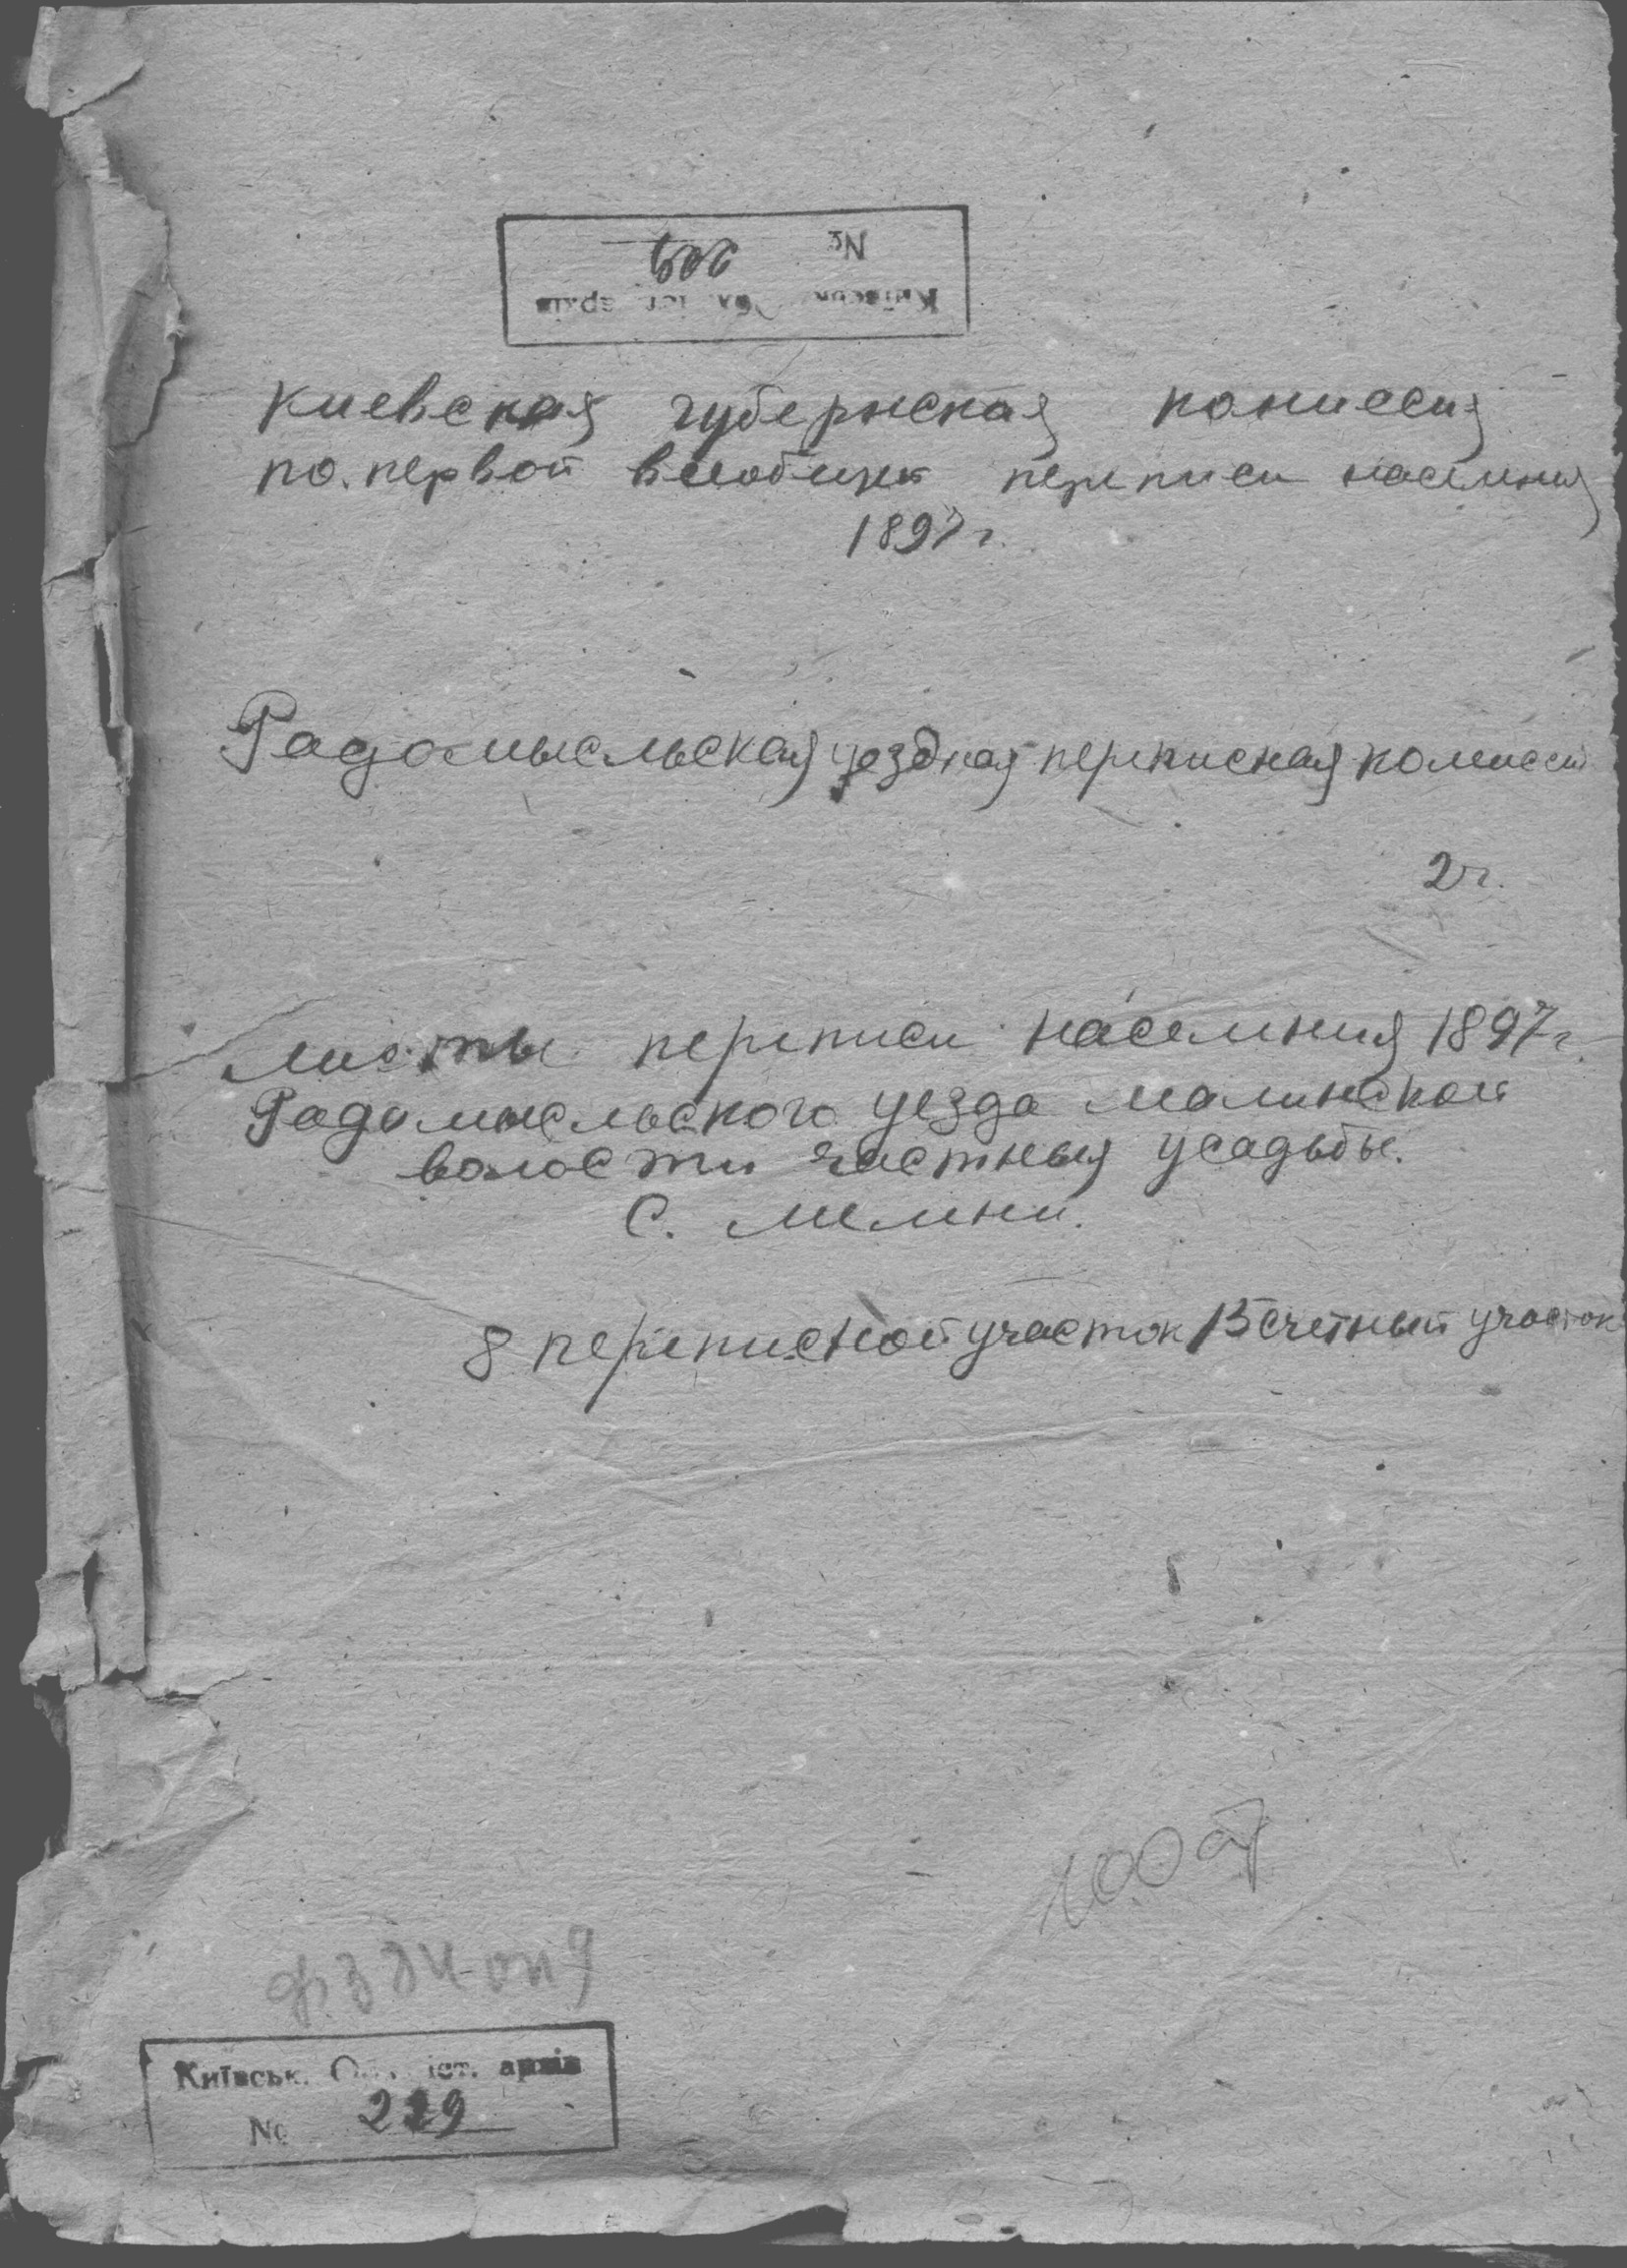 № 229
Київськ. Обл. іст. архів
Киевская губернская комиссия
по первой всеобщей переписи населения
1897 г.
Радомысльская уездная переписная комиссия
2 г.
Листы переписи населения 1897 г.
Радомысльского уезда Малинской
волости частныя усадьбы.
С. Мелени.
8 переписной участок 15 счетный участок
ф. 384 оп 9
Київськ. Обл. іст. архів
№ 229